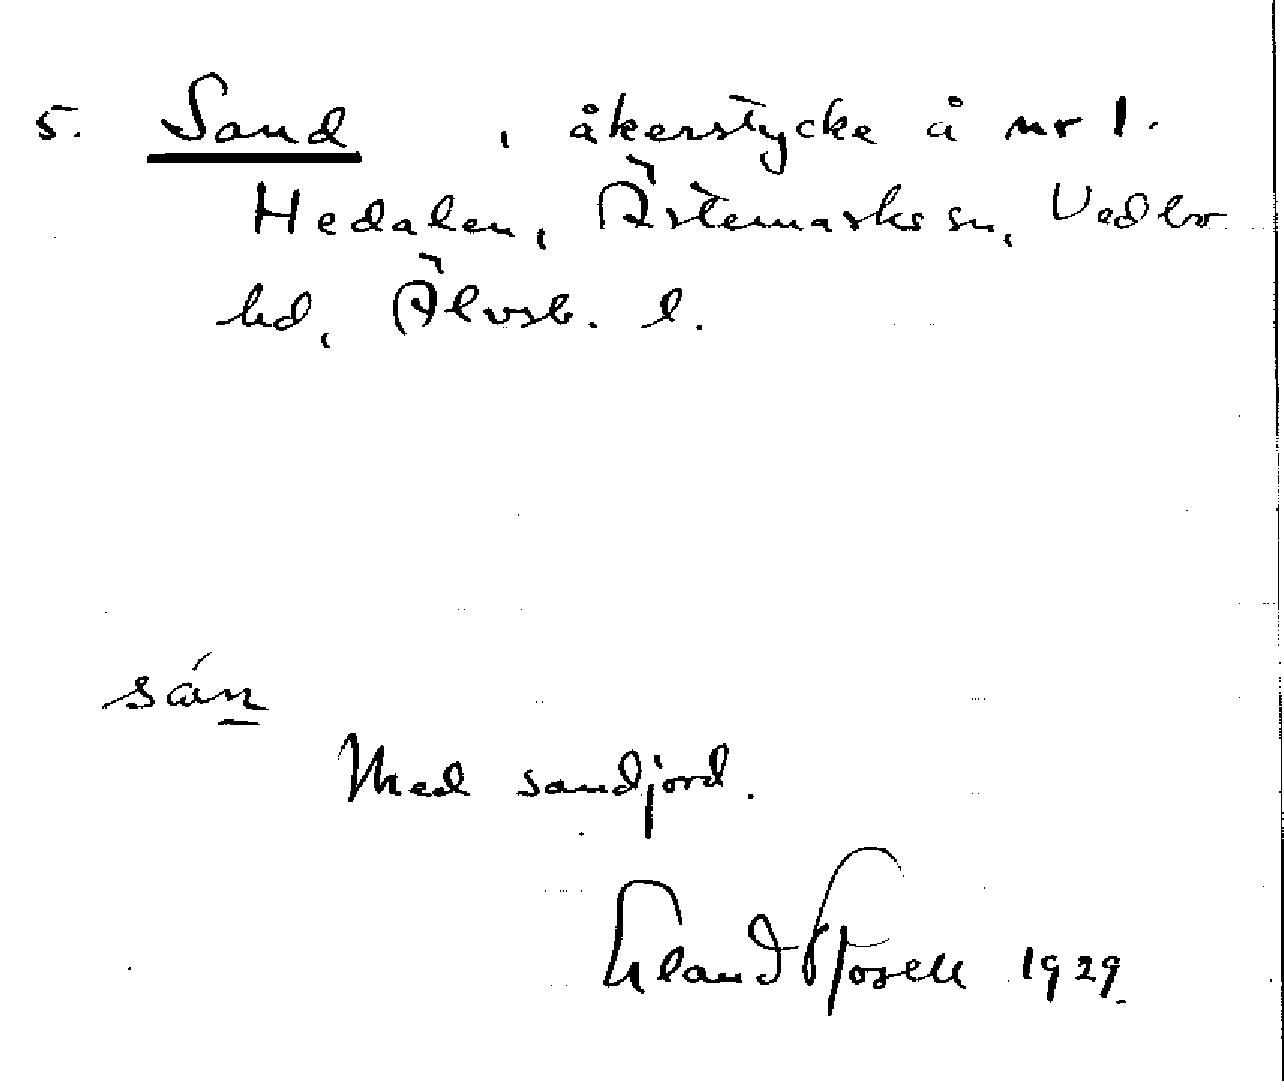 5. Sand, åkerstycke å nr 1.
Hedalen, Ärtemarks sn, Vedbo
hd, Älvsb. l.
sán
Med sandjord.
Erland Rosell 1929